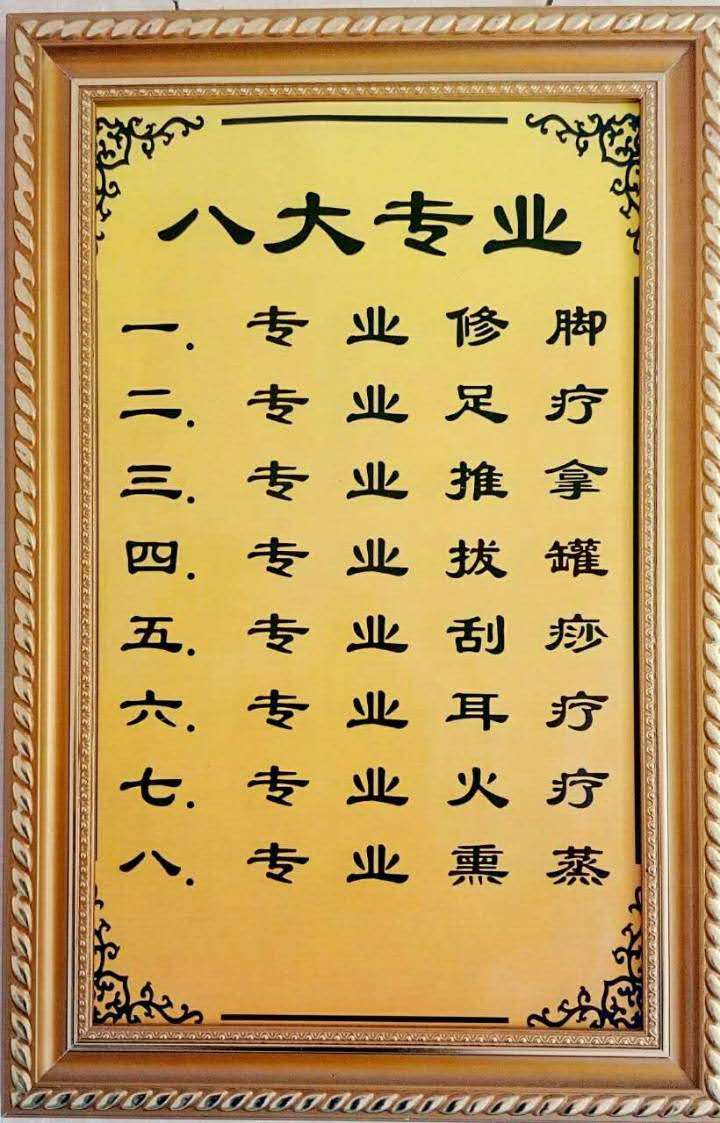 八大专业
一. 专业修脚
二. 专业足疗
三. 专业推拿
四. 专业拔罐
五. 专业刮痧
六. 专业耳疗
七. 专业火疗
八. 专业熏蒸